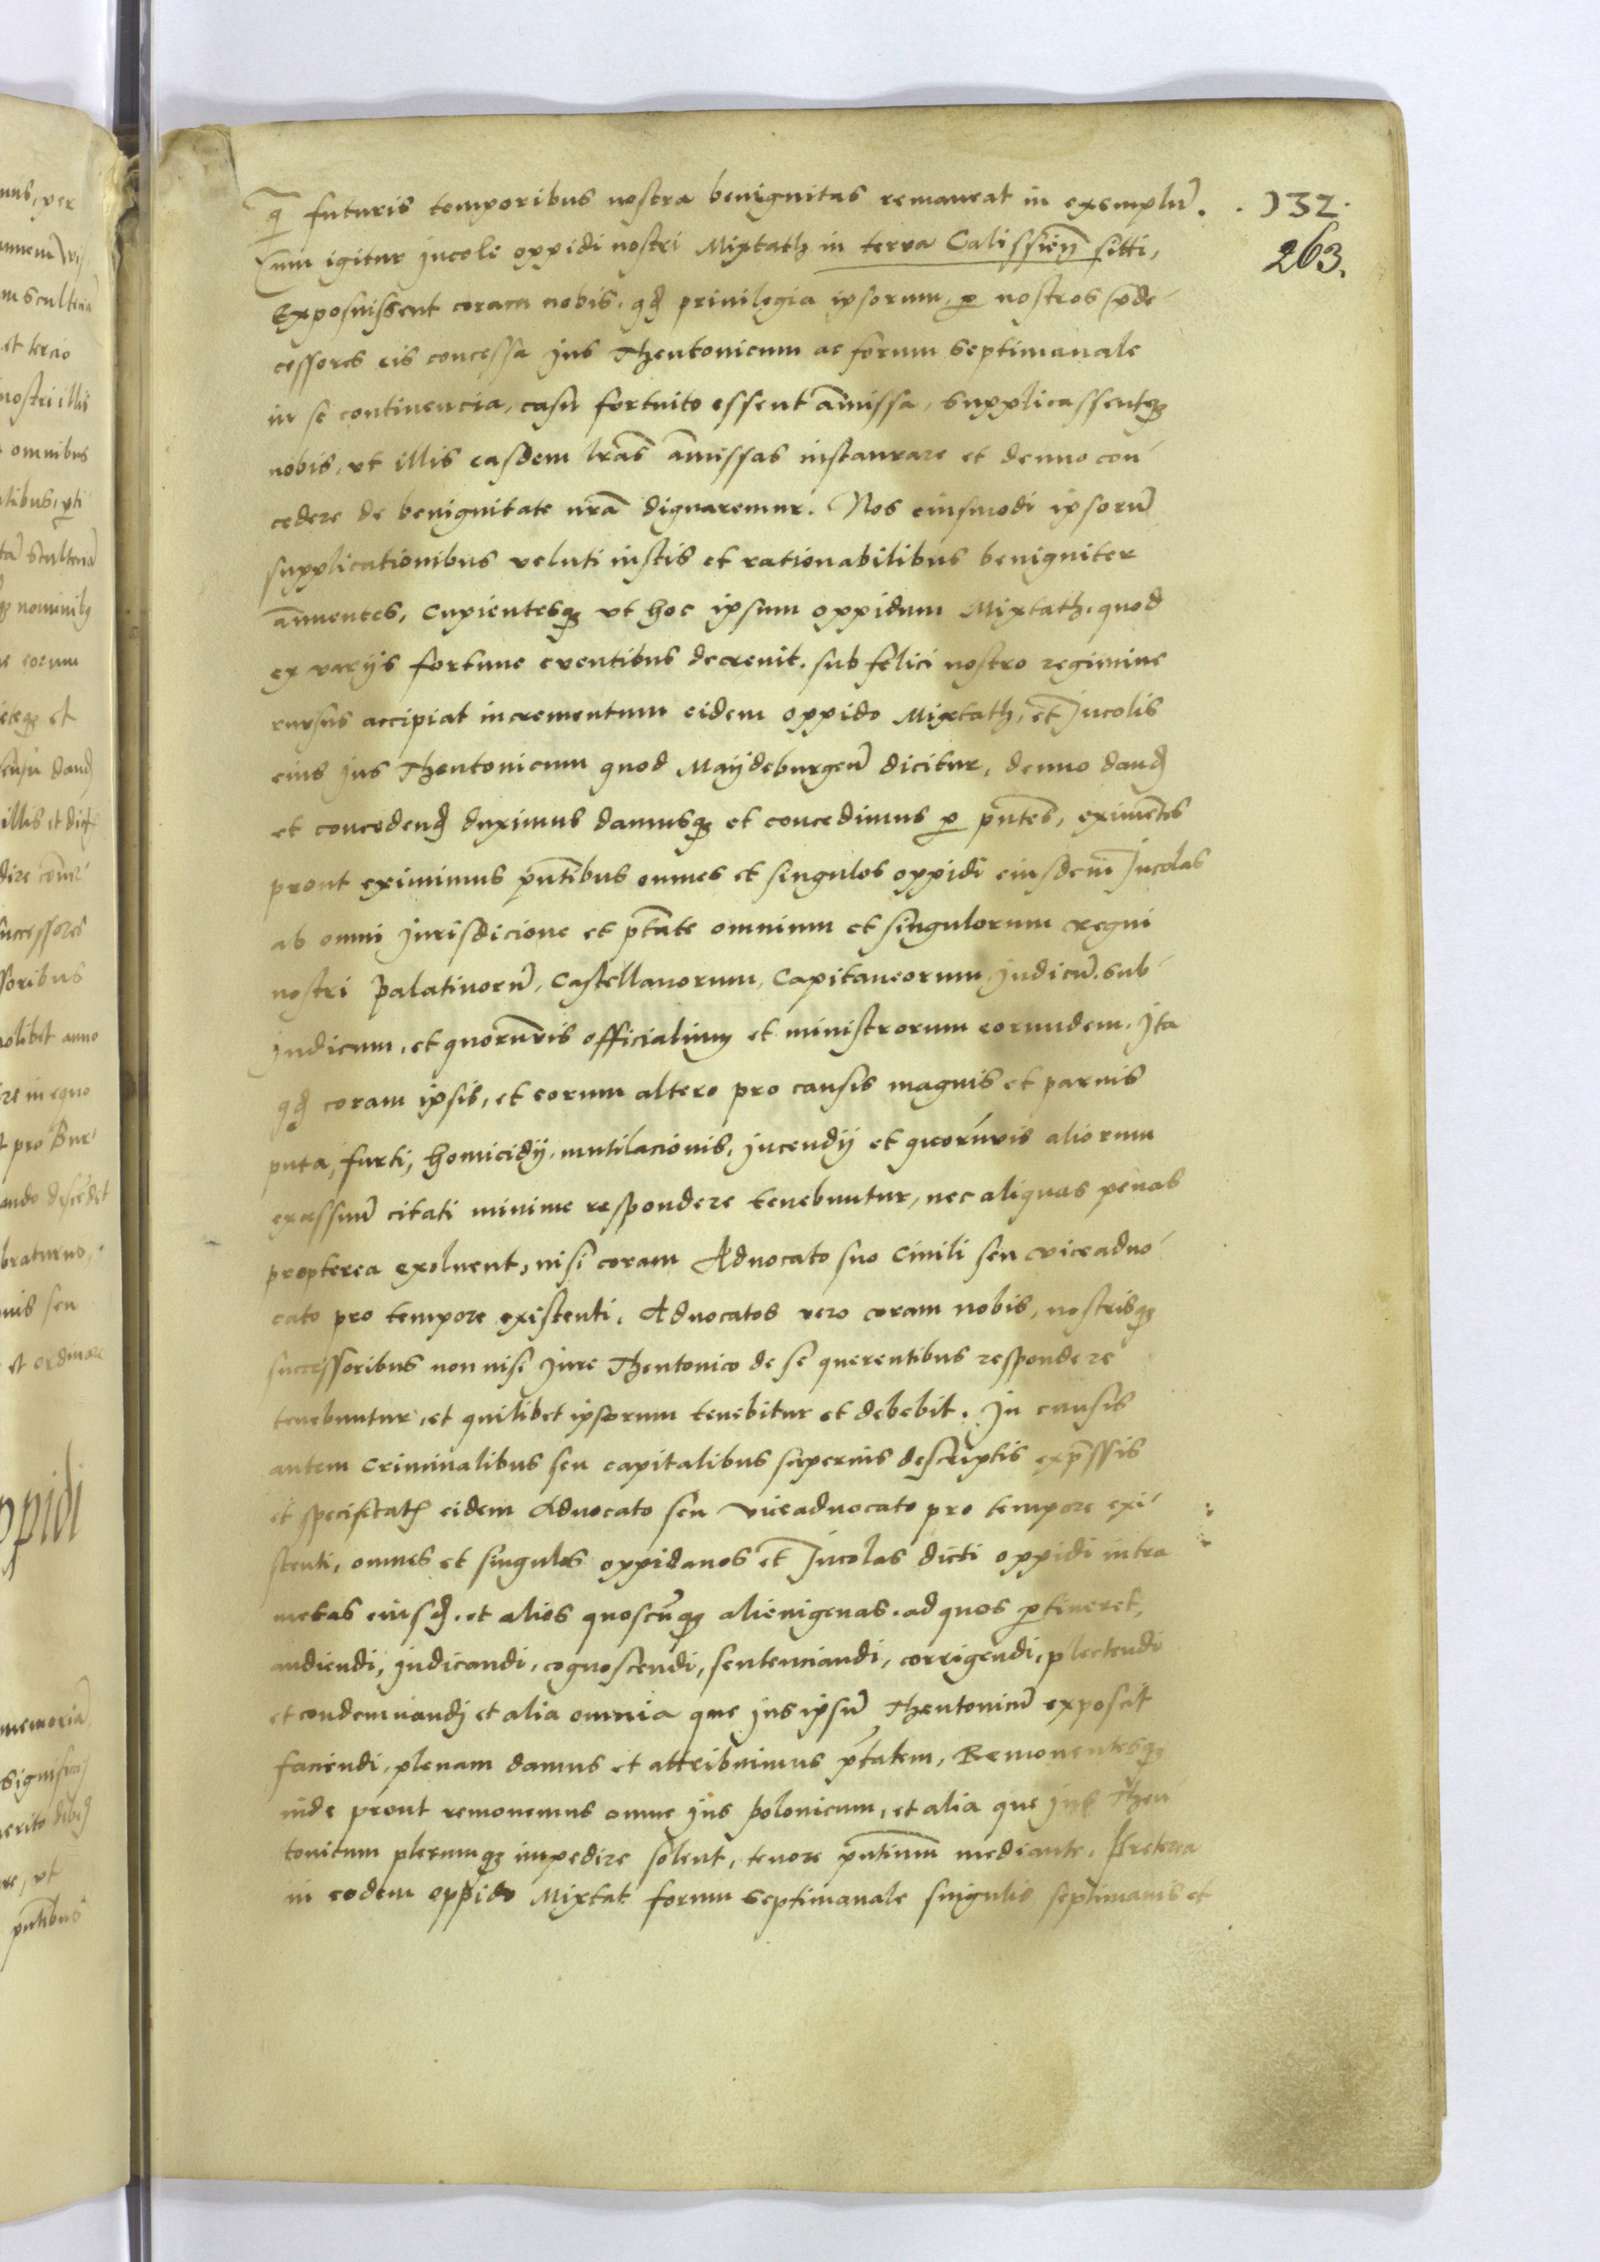 132.
263.
q futuris temporibus nostra benignitas remaneat in exemplũ.
Cum igitur incole oppidi nostri Mixtath in terra Calissieñ sitti,
Exposuissent coram nobis, qd privilegia ipsorum, p nostros p̃de-
cessores eis concessa jus Theutonicum ac forum septimanale
in se continencia, casu fortuito essent am̃issa, supplicassentq3
nobis, vt illis easdem l̃ras am̃issas instaurare et denuo con-
cedere de benignitate nr̃a dignaremur. Nos eiusmodi ipsorũ
supplicationibus veluti iustis et rationabilibus benigniter
añuentes, Cupientesq3 vt hoc ipsum oppidum Mixtath, quod
ex varijs fortune eventibus decrevit, sub felici nostro regimine
rursus accipiat incrementum eidem oppido Mixtath, et Incolis
eius jus Theutonicum quod Maydeburgeñ dicitur, denuo dand
et concedend duximus damusq3 et concedimus p p̃ntes, eximẽtes
prout eximimus p̃ntibus omnes et singulos oppidi eiusdem Incolas
ab omni jurisdicione et p̃tate omnium et singulorum regni
nostri Palatinorũ, Castellanorum, Capitaneorum judicũ, sub-
judicum, et quorũvis officialium et ministrorum eorundem, Ita
qd coram ipsis, et eorum altero pro causis magnis et parvis
puta, furti, homicidij, mutilacionis, jncendij et quorũvis aliorum
excessuũ citati minime respondere tenebuntur, nec aliquas penas
propterea exolvent, nisi coram Advocato suo Civili seu viceadvo-
cato pro tempore existenti, Advocatos vero coram nobis, nostrisq3
successoribus non nisi jure Theutonico de se querentibus respondere
tenebuntur, et quilibet ipsorum tenebitur et debebit. In causis
autem Criminalibus seu capitalibus superius descriptis exp̃ssis
et specificatis eidem Advocato seu viceadvocato pro tempore exi-
stenti, omnes et singulos oppidanos et Incolas dicti oppidi intra
metas eiusd, et alios quoscũq3 alienigenas, ad quos p̱tineret,
audiendi, judicandi, cognoscendi, sentenciandi, corrigendi, plectendi
et condemnandj et alia omnia que jus ipsũ Theutonicũ exposcit
faciendi, plenam damus et attribuimus p̃tatem, Removentesq3
inde prout removemus omne jus Polonicum, et alia que jus Theu
tonicum plerumq3 impedire solent, tenore p̃ntium mediante. Preterea
in eodem oppido Mixtat forum septimanale singulis septimanis et